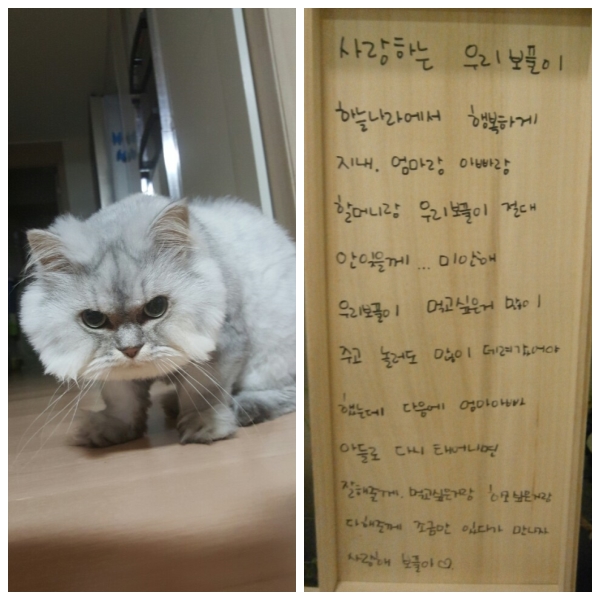 사랑하는 우리보플이
하늘나라에서 행복하게
지내. 엄마랑 아빠랑
할머니랑 우리보플이 절대
안잊을께... 미안해
우리보플이 먹고싶은거 많이
주고 놀러도 많이 데려갔어야
했는데 다음에 엄마아빠
아들로 다시 태어나면
잘해줄께. 먹고싶은거랑 하고싶은거랑
다해줄께 조금만 있다가 만나자
사랑해 보플이♡.